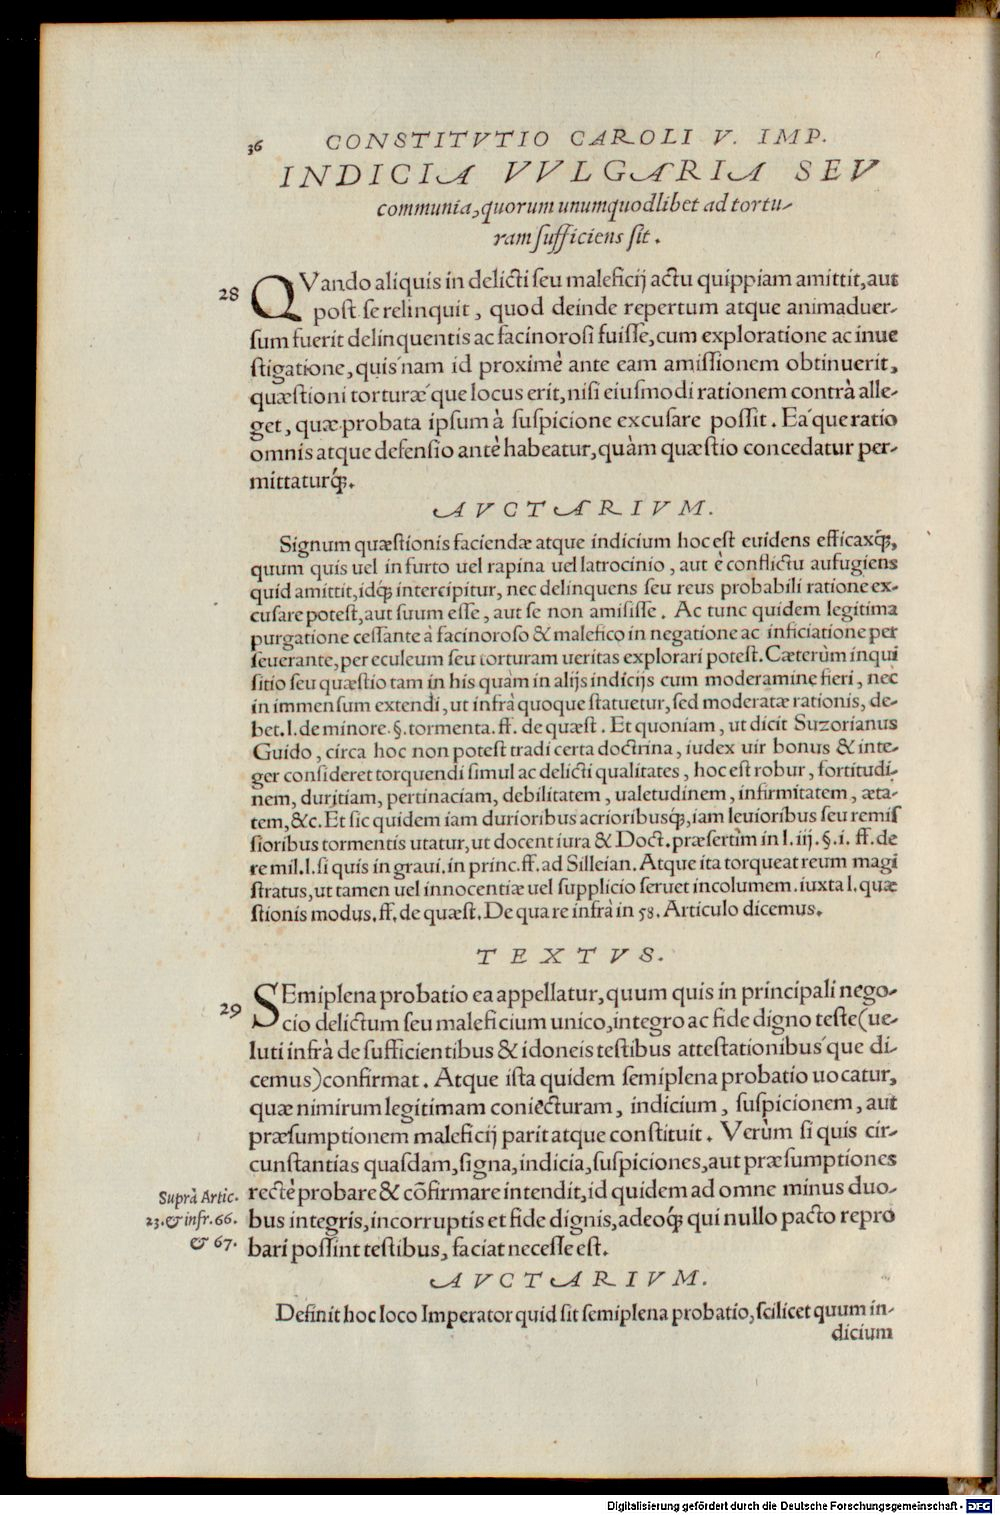 36 CONSTITVTIO CAROLI V. IMP.
INDICIA VVLGARIA SEV
communia, quorum unumquodlibet ad tortu-
ram ſufficiens ſit.
28 QVando aliquis in delicti ſeu maleficij actu quippiam amittit, aut
poſt ſe relinquit, quod deinde repertum atque animaduer-
ſum fuerit delinquentis ac facinoroſi fuiſſe, cum exploratione ac inue
ſtigatione, quis nam id proximè ante eam amiſſionem obtinuerit,
quæſtioni torturǽ que locus erit, niſi eiuſmodi rationem contrà alle-
get, quæ probata ipſum à ſuſpicione excuſare poſſit. Eá que ratio
omnis atque defenſio antè habeatur, quàm quæſtio concedatur per-
mittaturq́;.
AVCTARIVM.
Signum quæſtionis faciendæ atque indicium hoc eſt euidens efficaxq́;,
quum quis uel in furto uel rapina uel latrocinio, aut è conflictu aufugiens
quid amittit, idq́; intercipitur, nec delinquens ſeu reus probabili ratione ex-
cuſare poteſt, aut ſuum eſſe, aut ſe non amiſiſſe. Ac tunc quidem legitima
purgatione ceſſante à facinoroſo & malefico in negatione ac inficiatione per
ſeuerante, per eculeum ſeu torturam ueritas explorari poteſt. Cæterùm inqui
ſitio ſeu quæſtio tam in his quàm in alijs indicijs cum moderamine fieri, nec
in immenſum extendi, ut infrà quoque ſtatuetur, ſed moderatæ rationis, de-
bet. l. de minore. §. tormenta. ff. de quæſt. Et quoniam, ut dicit Suzorianus
Guido, circa hoc non poteſt tradi certa doctrina, iudex uir bonus & inte-
ger conſideret torquendi ſimul ac delicti qualitates, hoc eſt robur, fortitudi-
nem, duritiam, pertinaciam, debilitatem, ualetudinem, infirmitatem, æta-
tem, &c. Et ſic quidem iam durioribus acrioribusq́;, iam leuioribus ſeu remiſ
ſioribus tormentis utatur, ut docent iura & Doct. præſertim in l. iij. §. i. ff. de
re mil. l. ſi quis in graui. in princ. ff. ad Silleian. Atque ita torqueat reum magi
ſtratus, ut tamen uel innocentiæ uel ſupplicio ſeruet incolumem. iuxta l. quæ
ſtionis modus. ff. de quæſt. De qua re infrà in 58. Articulo dicemus.
TEXTVS.
29 SEmiplena probatio ea appellatur, quum quis in principali nego-
cio delictum ſeu maleficium unico, integro ac fide digno teſte (ue-
luti infrà de ſufficientibus & idoneis teſtibus atteſtationibus´que di-
cemus) confirmat. Atque iſta quidem ſemiplena probatio uocatur,
quæ nimirum legitimam coniecturam, indicium, ſuſpicionem, aut
præſumptionem maleficij parit atque conſtituit. Verùm ſi quis cir-
cunſtantias quaſdam, ſigna, indicia, ſuſpiciones, aut præſumptiones
Suprà Artic. rectè probare & cõfirmare intendit, id quidem ad omne minus duo-
23. & infr. 66. bus integris, incorruptis et fide dignis, adeoq́; qui nullo pacto repro
& 67. bari poſſint teſtibus, faciat neceſſe eſt.
AVCTARIVM.
Definit hoc loco Imperator quid ſit ſemiplena probatio, ſcilicet quum in-
dicium
Digitalisierung gefördert durch die Deutsche Forschungsgemeinschaft - DFG